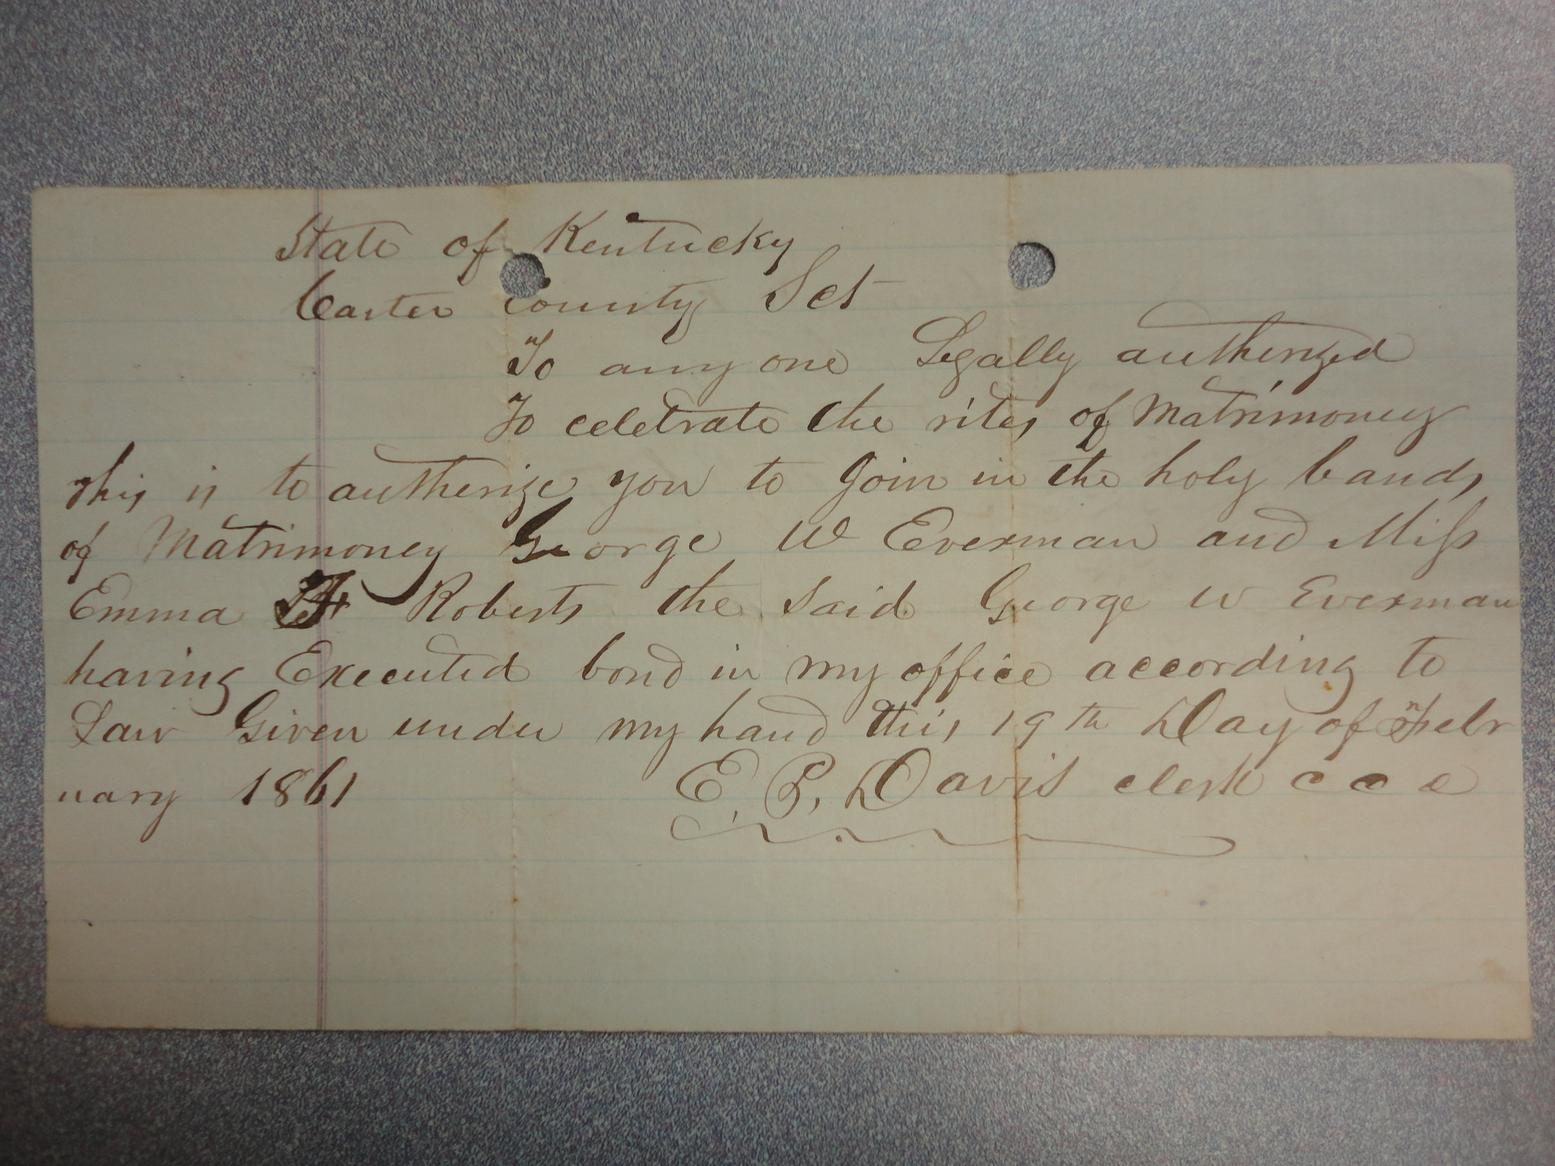 State of Kentucky
Carter County Sct
To any one Legally authorized
To celebrate the rites of Matrimoney
This is to authorize you to Join in the holy bands
of Matrimoney George W Everman and Miss
Emma Roberts the said George W Everman
having Executed bond in my office according to
Law Given under my hand this 19th Day of Febr
uary 1861 E. P. Davis clerk c c c